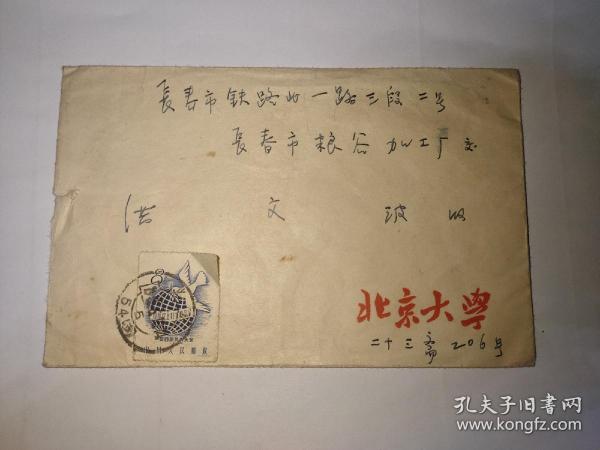 長春市铁路北一路三段二号
長春市粮谷加工厂交
洪文波收
北京大學
二十三斋206号
孔夫子旧书网
www.kongfz.com